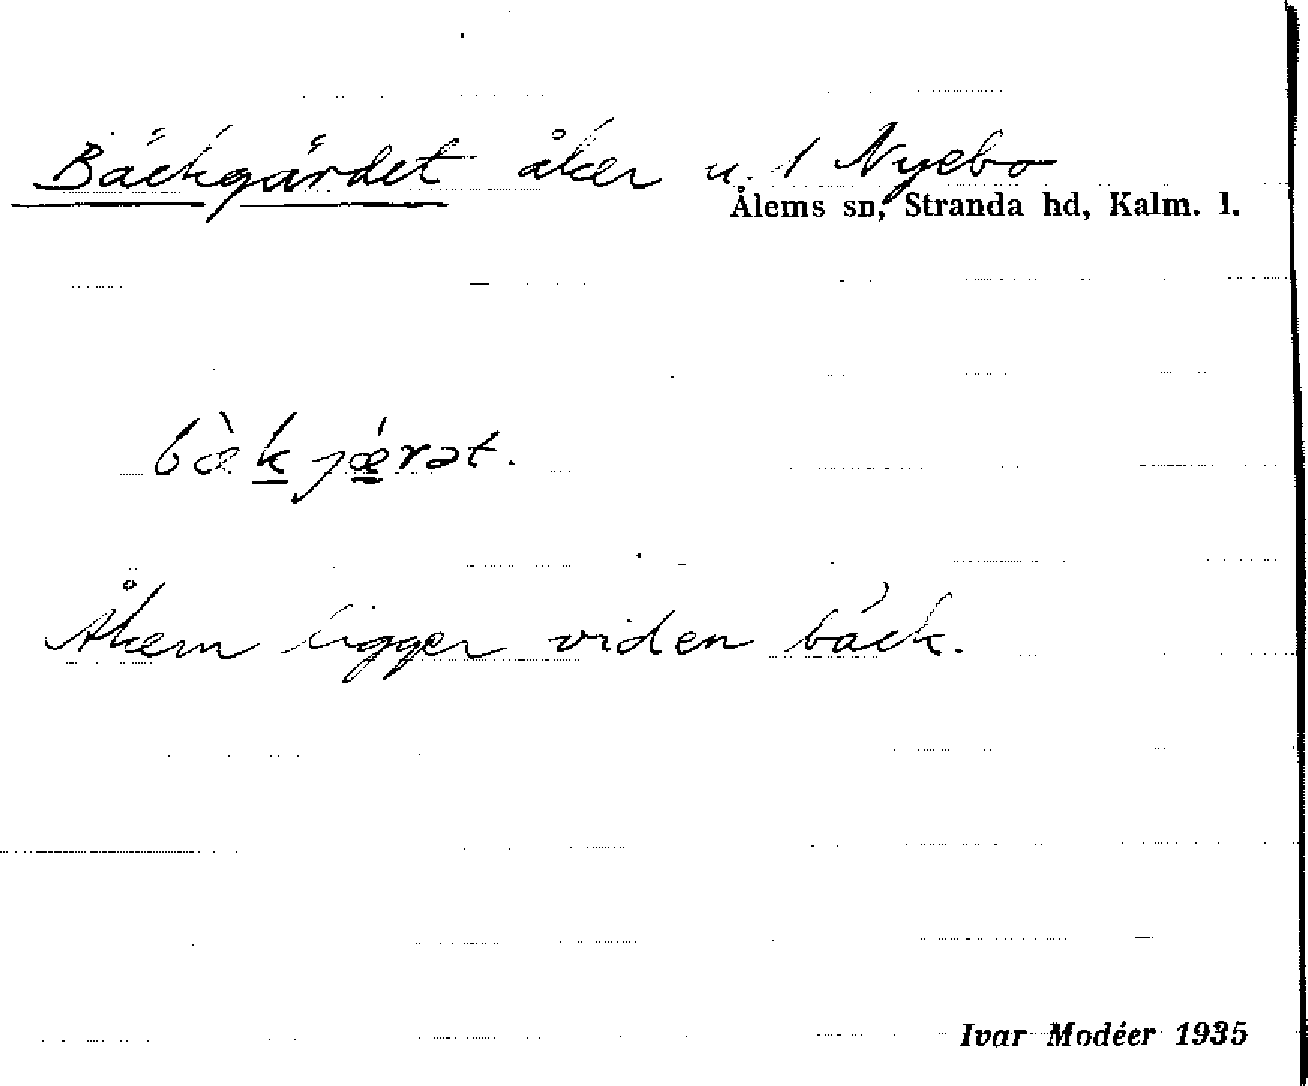 Bäckgärdet åker u. 1 Nyebo
Ålems sn, Stranda hd, Kalm. l.
bæ̀k jǽrət.
Åkern ligger vid en bäck.
Ivar Modéer 1935